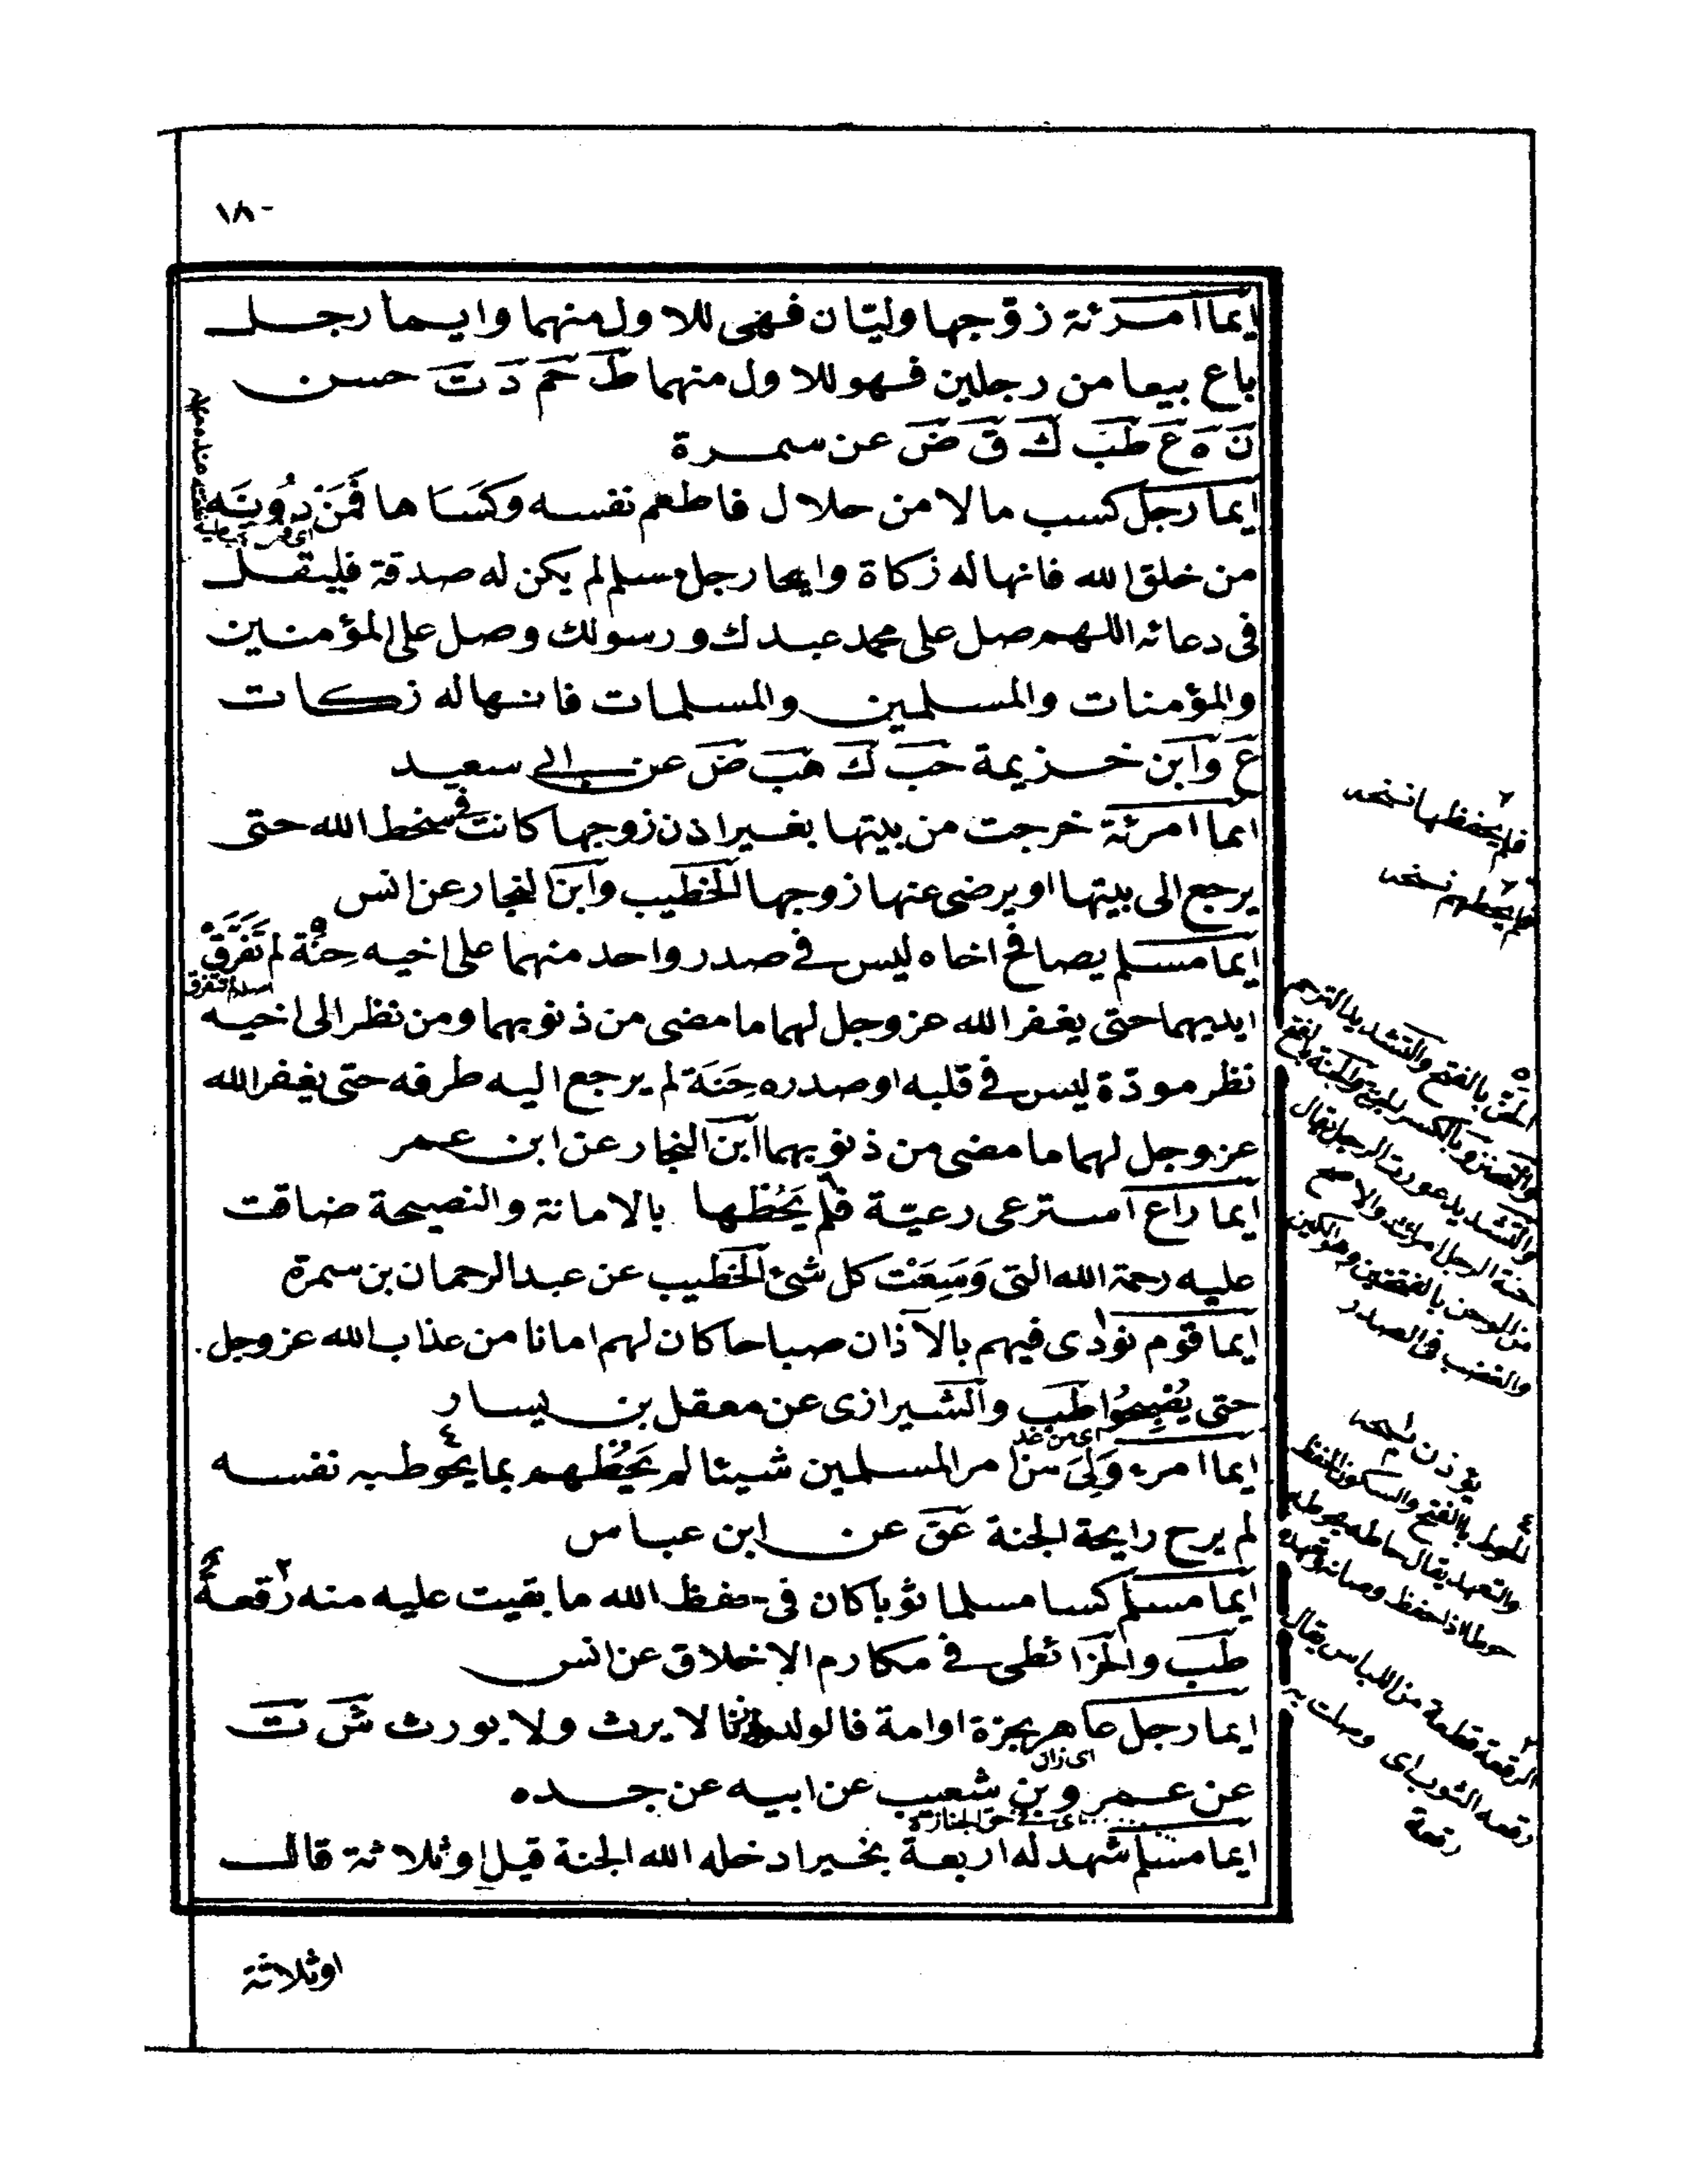 ١٨٠
ايما امرئة زوّجها وليّان فهى للاول منهما وايما رجل
باع بيعا من رجلين فهو للاول منهما ط حم د ت حسن
ن ه ع طب ك ق ض عن سمرة
ايما رجل كسب مالا من حلال فاطعم نفسه وكَسَاها فمَنْ دُونَه
من خلق الله فانها له زكاة وايما رجل مسلم لم يكن له صدقة فليقل
فى دعائه اللهم صل على محمد عبدك ورسولك وصل على المؤمنين
والمؤمنات والمسلمين والمسلمات فانها له زكات
ع وابن خزيمة حب ك هب ض عن ابى سعيد
ايما امرئة خرجت من بيتها بغير اذن زوجها كانت فى سخط الله حتى
يرجع الى بيتها او يرضى عنها زوجها الخطيب وابن النجار عن انس
ايما مسلم يصافح اخاه ليس فى صدر واحد منهما على اخيه حِنَة لم تَفَرَّقْ
اصله تتفرق
ايديهما حتى يغفر الله عز وجل لهما ما مضى من ذنوبهما ومن نظر الى اخيه
نظر مودّة ليس فى قلبه او صدره حِنَة لم يرجع اليه طرفه حتى يغفر الله
عز وجل لهما ما مضى من ذنوبهما ابن النجار عن ابن عمر
ايما راع استرعى رعيّة فلم يَحُطْها بالامانة والنصيحة ضاقت
عليه رحمة الله التى وَسِعَتْ كل شئ الخطيب عن عبد الرحمان بن سمرة
ايما قوم نودى فيهم بالآذان صباحا كان لهم امانا من عذاب الله عز وجل
حتى يُمْسُوا طب والشيرازى عن معقل بن يسار
ايما امرء وَلِىَ من امر المسلمين شيئا لم يَحُطْهم بما يحوط به نفسه
لم يرح رايحة الجنة عق عن ابن عباس
ايما مسلم كسا مسلما ثوبا كان فى حفظ الله ما بقيت عليه منه رُقعةٌ
طب والخرائطى فى مكارم الاخلاق عن انس
ايما رجل عاهر بحرة او امة فالولد ولد زنا لا يرث ولا يورث ش ت
اى زان
عن عمرو بن شعيب عن ابيه عن جده
ايما مسلم شهد له اربعة بخير ادخله الله الجنة قيل او ثلاثة قال
او ثلاثة
فلم يحفظها نسخه
فلم يحطهم نسخه
والغضب فى الصدر
يؤذن نسخه
الحوط بالفتح والسكون الحفظ
والتعهد يقال حاطه يحوطه
حوطا اذا حفظ وصانه
الرقعة قطعة من اللباس يقال
رقعه الثوب اى وصلت به
رقعة